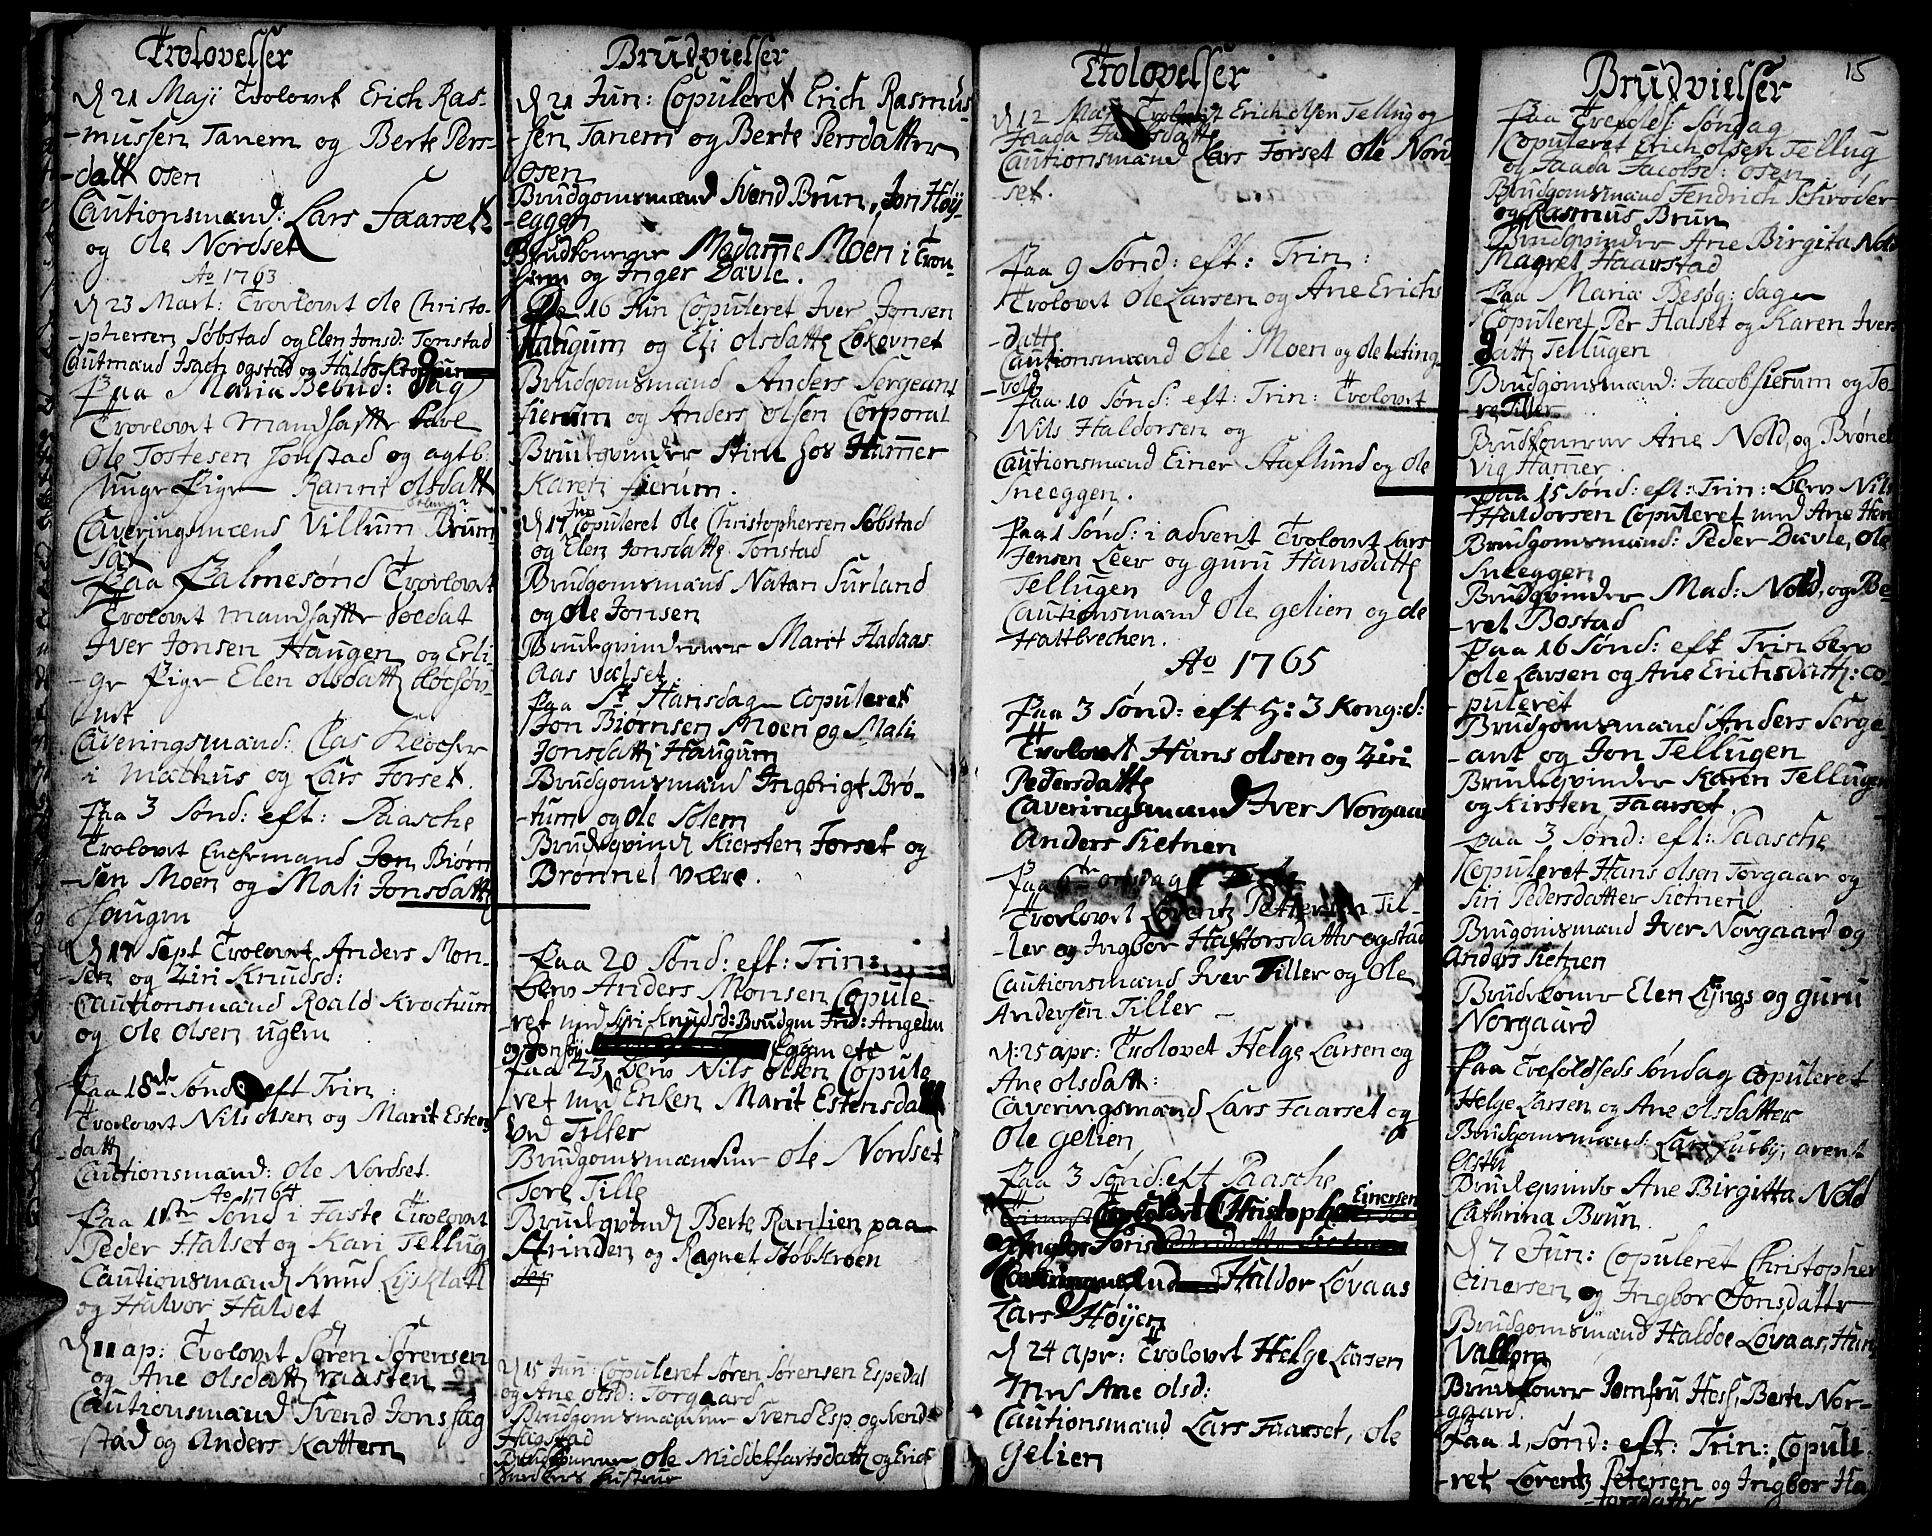 Trolovelser
d 21 Maji Trolovet Erich Ras-
-mussen Tanem og Berte Pers-
-datt osen
Cautionsmænd: Lars Faarset
og Ole Nordset
Ao 1763
d 23 Mart: Trolovet Ole Christo-
-phersen Søbstad og Elen Jonsd: Tonstad
Cautmænd Isach ogstad og Haldo Krochum
Paa Maria Bebud: Dag
Trolovet Mandhafte Karl
Ole Tostesen Sønstad og agtb:
unge Pige Rannie Olsdatt
Solem
Caveringsmænd Villum Brum
Paa Palmesønd Trolovet
Trolovet Mandhafte Soldat
Iver Jonsen Haugen og Erli-
-ge Pige Elen Olsdatt
Caveringsmænd: Clas
i Mathus og Lars Forset.
Paa 3 Sønd: eft: Paasche
Trolovet Enchemand Jon Biørn
-sen Moen og Mali Jonsdatt
Haugen
d 17 Sept Trolovet Anders Mon-
sen og Ziri Knudsd:
Cautionsmænd Roald Krochum
og Ole Olsen ugem
Paa 18de Sønd eft Trin:
Trolovet Nils Olsen og Marit Estens
datt
Cautionsmænd: Ole Nordset.
Ao 1764
Paa 1ste Sønd i Faste Trolovet
Peder Halset og Kari Tellug
Cautionsmænd Knud Lysklatt
og Halvor Halset
d 11 ap: Trolovet Søren Sørensen
og Ane Olsdatt raasten
Cautionsmænd Svend Jonssag
stad og Anders Kattem
Brudvielser
d 21 Jun: Copuleret Erich Rasmus-
-sen Tanem og Berte Persdatter
osen
Brudgomsmænd Svend Brun, Jon Høy-
-eggen
Brudkoner Madame Moen i Tron-
hiem og Inger Davle.
16 Jun Copuleret Iver Jonsen
Haugum og Eli Olsdatt Løkevnet
Brudgomsmænd Anders Sergeant
fierum og Anders Olsen Corporal
Brudqvinder Stine hos Hammer
Karen fierum.
d 17 Jun Copuleret Ole Christophersen Søbstad
og Elen Jonsdatte Tonstad
Brudgomsmænd Natan Surland
og Ole Jonsen
Brudeqvinder Marit Hadaas
Aas Valset.
Paa St Hansdag Copuleret
Jon Biørnsen Moen og Mali
Jonsdatt Haugum
Brudgomsmænd Ingbrigt Brø-
-tum og Ole Solem
Brudeqvind Kiersten Forset og
Brønnel Være.
Paa 20 Sønd: eft: Trin:
blev Anders Monsen Copule-
-ret med Siri Knudsd: Brudgm Frid: Angelm
Paa 23 blev Nils Olsen Copule-
ret med Enken Marit Estensdatt
ved Tiller
Brudgomsmænd Ole Nordset
Tore Tille
Brudqvind Berte Ranlien paa
Strinden og Ragnel Støbkroen
d 15 Jun: Copuleret Søren Sørensen Espedal
og Ane Olsd: Torgaard
Brudgomsmænd Svend Esp og Svend
Hagstad
Brudkoner Ole Middelfartsdatt og Erich
hustrue
Trolovelser
d 12 Maji Trolovet Erich Olsen Tellug og
Jaada Jacobsdatt
Cautionsmænd Lars Forset Ole Nord
set.
Paa 9 Sønd: eft: Trin:
Trolovet Ole Larsen og Ane Erichs
datte
Cautionsmænd Ole Moen og Ole Leting-
-vold
Paa 10 Sønd: eft: Trin: Trolovet
Nils Haldorsen og
Cautionsmænd Einer Aaflund og Ole
Sneeggen.
Paa 1 Sønd: i advent Trolovet Lars
Jensen Leer og guru Hansdatt
Tellugen
Cautionsmænd Ole gelien og Ole
Hattbrechen.
Ao 1765
Paa 3 Sønd: eft H: 3 Kong:d:
Trolovet Hans Olsen og Ziri
Pedersdatte
Caveringsmænd Iver Norgaar
Anders Sietnen
Trolovet Lorentz Pettersen Til-
-ler og Ingbor Haftorsdatter ogstad
Cautionsmænd Iver Tiller og Ole
Andersen Tiller
d: 25 apr: Trolovet Helge Larsen og
Ane Olsdatt:
Caveringsmænd Lars Faarset og
Ole Gelien
Paa 3 Sønd: eft Paasche
Trolovet Christopher Einersen
og Ingbor Jonsd
Haldor Lovaas
Lars Høijen
d 24 apr: Trolovet Helge Larsen
med Ane Olsd:
Cautionsmænd Lars Faarset, Ole
Gelien
Brudvielser 15
Paa Trefoldes Søndag
Copuleret Erich Olsen Tellug
og Jaada Jacobsd: osen
Brudgomsmænd Fendrich Schrøder
og Rasmus Brun
Brudqvinder Ane Birgita Nold
Magrel Haarstad
Paa Maria Besøg: dage
Copuleret Per Halset og Karen Ivers
datt Tellugen
Brudgomsmænd: Jacob fierum og To-
re Tiller
Brudkoner Ane Nold, og Brønel
Vig Hammer
Paa 15 Sønd: eft: Trin: blev Nils
Haldorsen Copuleret med Ane Hen
Brudgomsmænd: Peder Davle, Ole
Sneeggen
Brudqvinder Mad: Nold, og Be-
-ret Bostad
Paa 16 Sønd: eft Trin blev
Ole Larsen og Ane Erichsdatt: Co-
-puleret
Brudgomsmænd Anders Serge
-ant og Jon Tellugen
Brudeqvinder Karen Tellugen
og Kirsten Faarset
Paa 3 Sønd: eft: Paasche
Copuleret Hans Olsen Torgaar og
Siri Pedersdatter Sietnen
Brugomsmænd Iver Norgaard og
Anders Sietnen
Brudekoner Elen Lyngs og guru
Norgaard
Paa Trefoldheds Søndag Copuleret
Helge Larsen og Ane Olsdatter
Brudgomsmænd: Lars Lusby, arent
Brudeqvinder Ane Birgitta Nold
Cathrina Brun
d 7 Jun: Copuleret Christopher
Einersen og Ingbor Jonsdatter
Brudgomsmænd Haldoe Lovaas,
Brudekoner Jomfru Hess, Berte Nor-
-gaard.
Paa 1, Sønd: eft: Trin: Copule-
-ret Lorentz Petersen og Ingbor Ha
-torsdatter